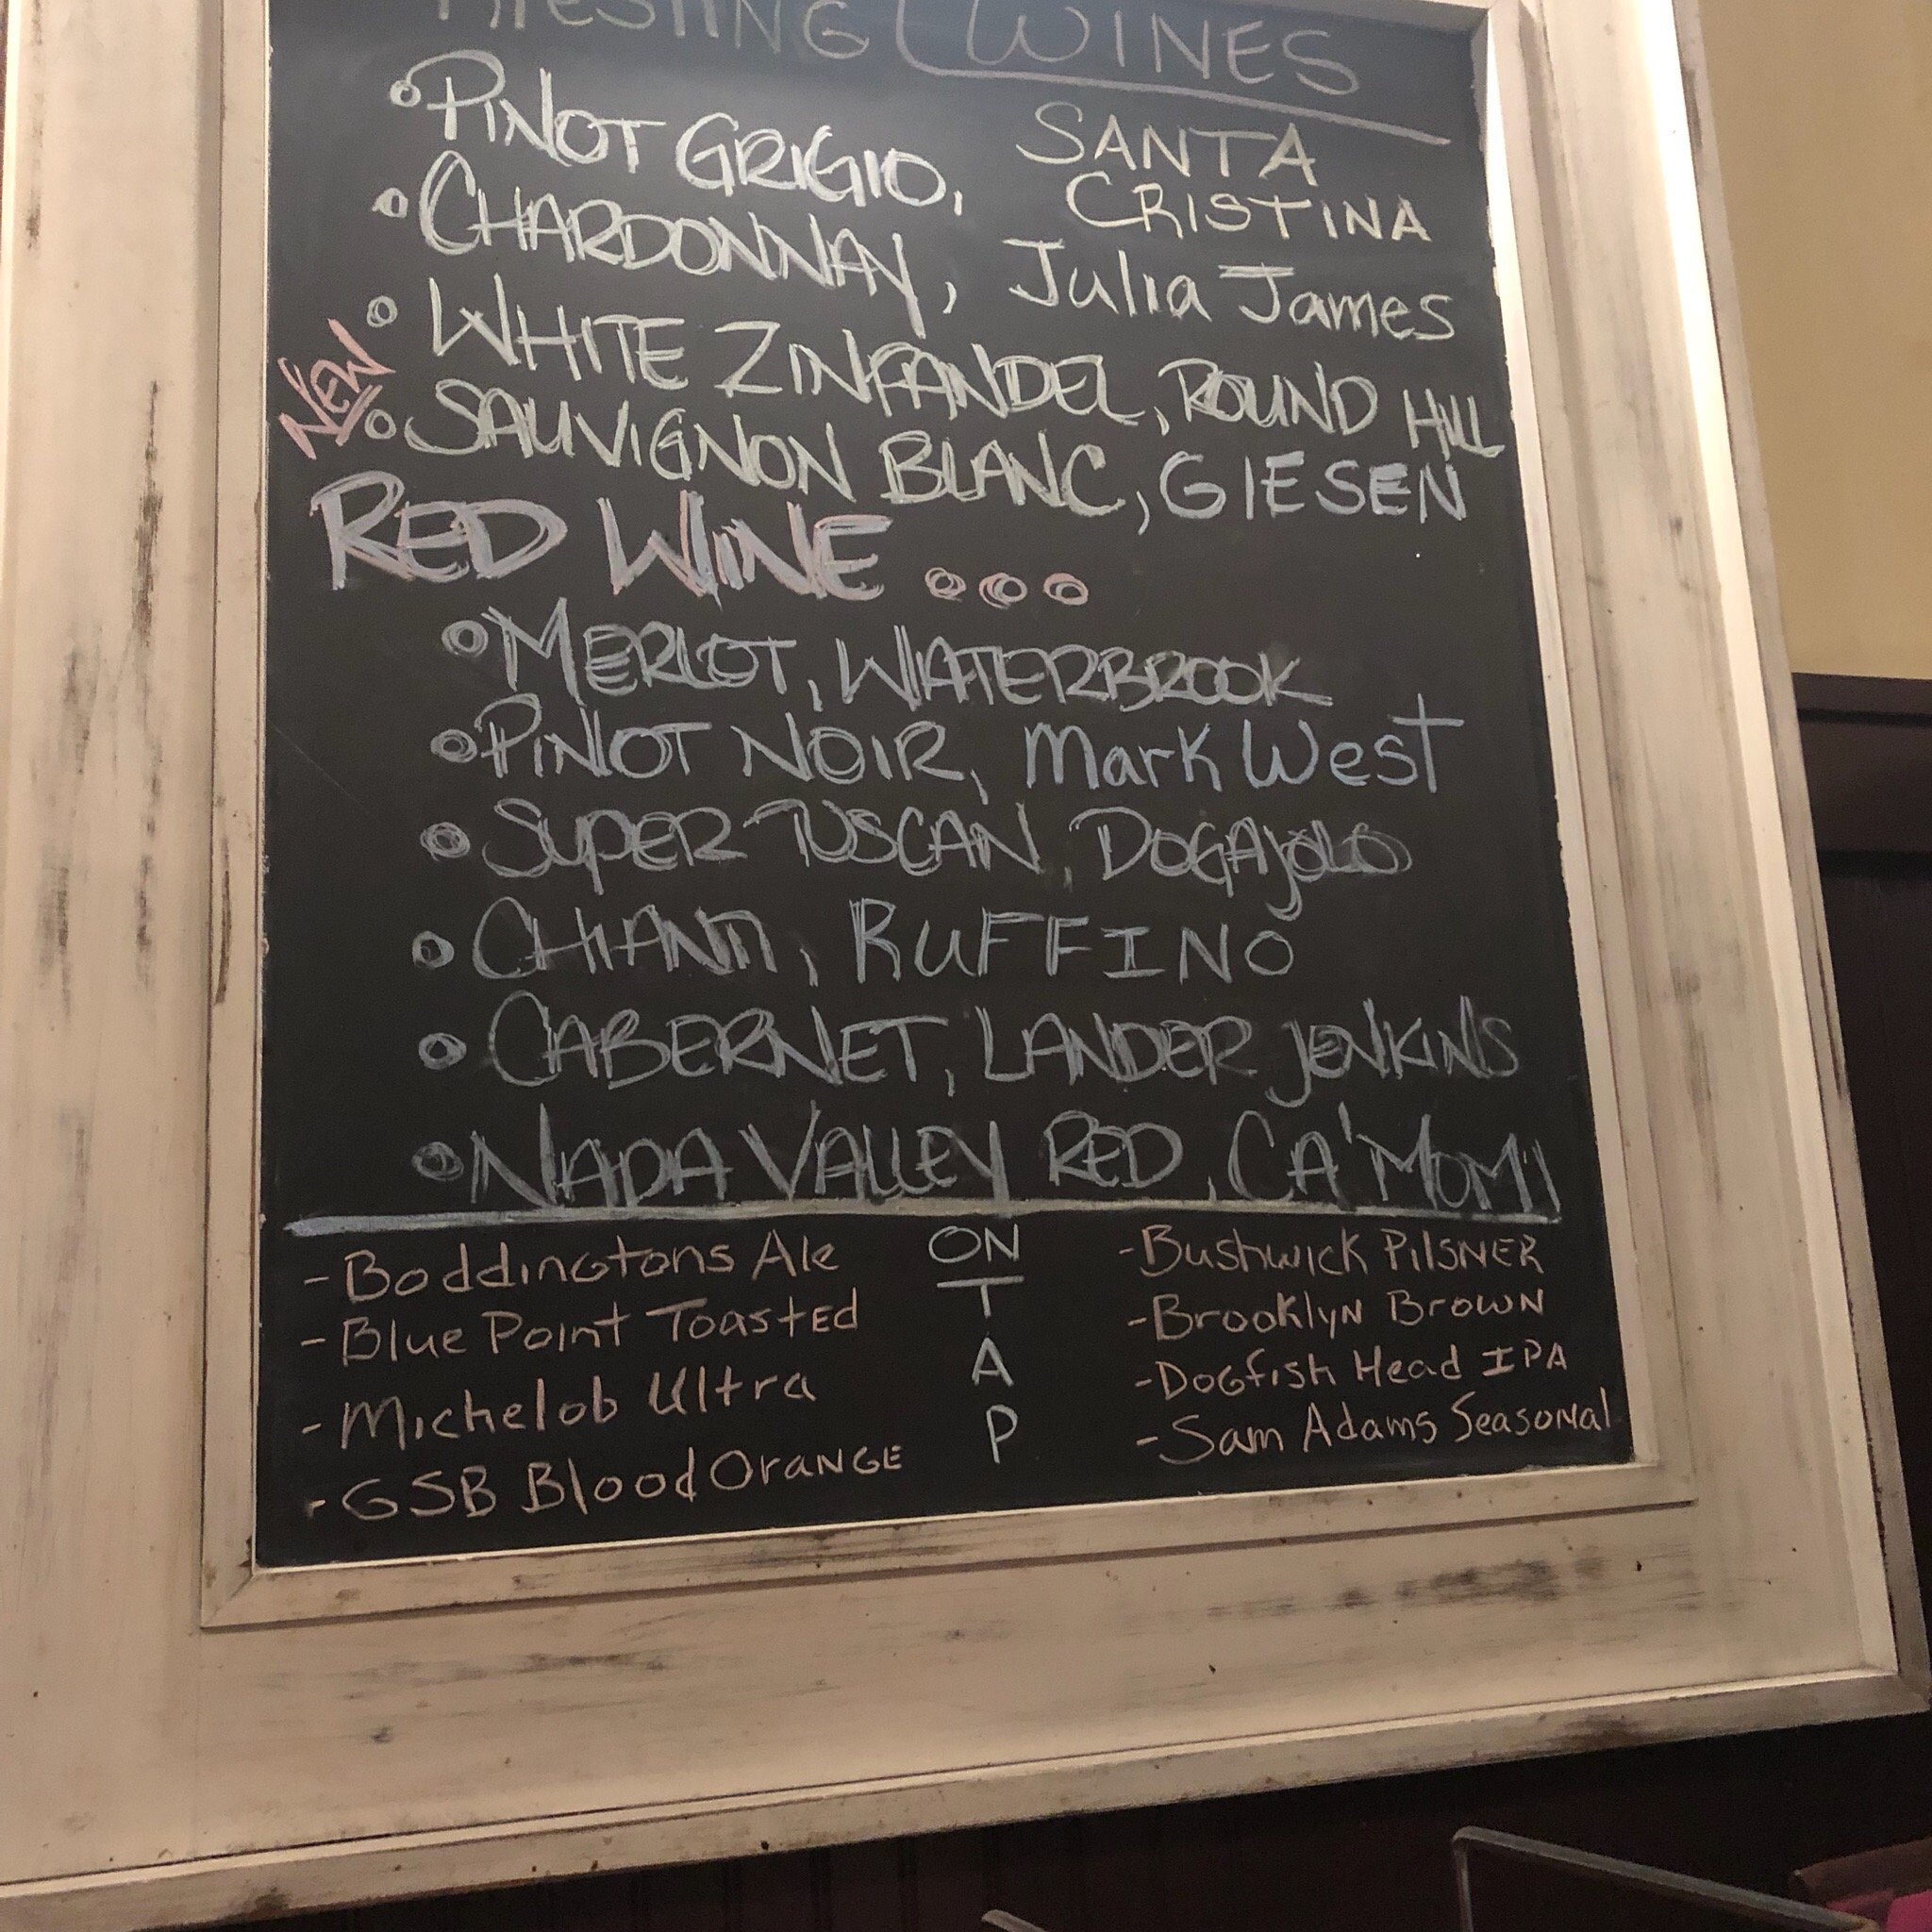 WINES
• PINOT GRIGIO, SANTA CRISTINA
• CHARDONNAY, Julia James
• WHITE ZINFANDEL, ROUND HILL
NEW • SAUVIGNON BLANC, GIESEN
RED WINE ...
• MERLOT, WATERBROOK
• PINOT NOIR, Mark West
• SUPER TUSCAN, DOGAJOLO
• CHIANTI, RUFFINO
• CABERNET, LANDER JENKINS
• NAPA VALLEY RED, CA'MOMI
ON
T
A
P
- Boddingtons Ale
- Blue Point Toasted
- Michelob Ultra
- GSB Blood Orange
- Bushwick Pilsner
- Brooklyn Brown
- Dogfish Head IPA
- Sam Adams Seasonal